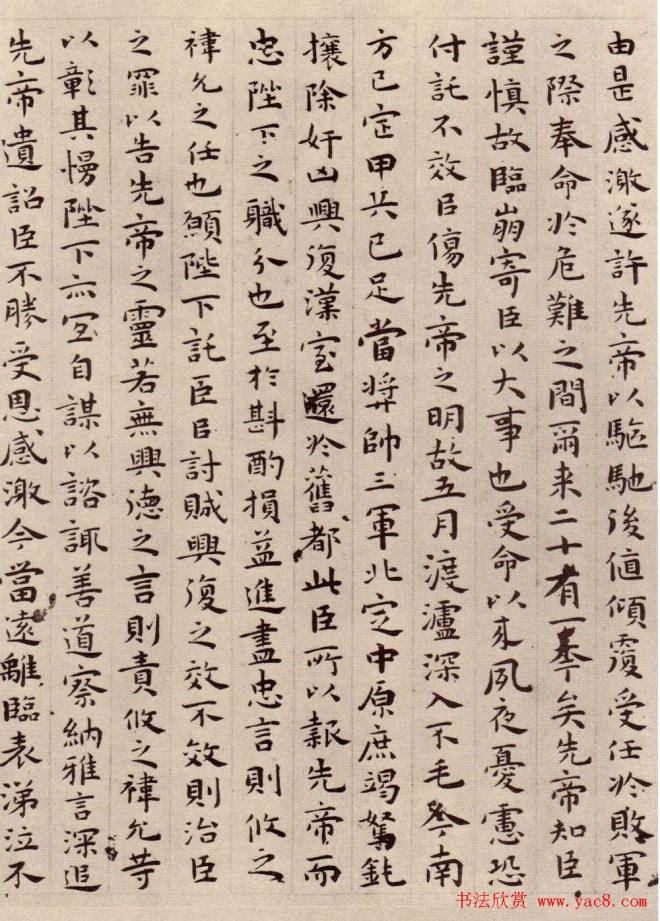 由是感激遂許先帝以驅馳後值傾覆受任於敗軍
之際奉命於危難之間爾来二十有一年矣先帝知臣
謹慎故臨崩寄臣以大事也受命以来夙夜憂慮恐
付託不效臣傷先帝之明故五月渡瀘深入不毛今南
方已定甲兵已足當奬帥三軍北定中原庶竭駑鈍
攘除奸凶興復漢室還於舊都此臣所以報先帝而
忠陛下之職分也至於斟酌損益進盡忠言則攸之
禕允之任也願陛下託臣臣討賊興復之效不效則治臣
之罪以告先帝之靈若無興德之言則責攸之禕允等
以彰其慢陛下亦宜自謀以諮諏善道察納雅言深追
先帝遺詔臣不勝受恩感激今當遠離臨表涕泣不
书法欣赏 www.yac8.com